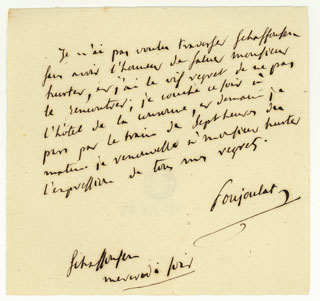 Je n'ai pas voulu traverser Schaffouse
sans avoir l'honneur de saluer monsieur
hurter, et j'ai le vif regret de ne pas
le rencontrer; je couche ce soir à
l'hôtel de la couronne, et demain je
pars par le train de sept heures du
matin je renouvelle à monsieur hurter
l'expression de tous mes regrets.
Poujoulat
Schaffouse
mercredi soir